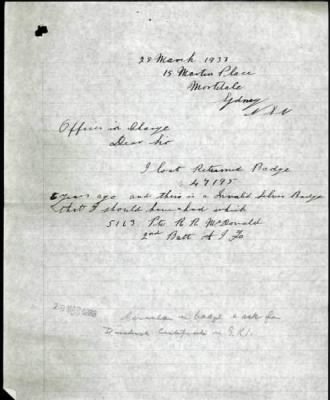 28 March 1933
15 Martin Place
Mortdale
Sydney
N S W
Officer in Charge
Dear Sir
I lost Returned Badge
47195
years ago and there is a Invalid Silver Badge
that I should have had which
5163 Pte R R McDonald
2nd Batt A I F
badge & ask for
Discharge Certificate